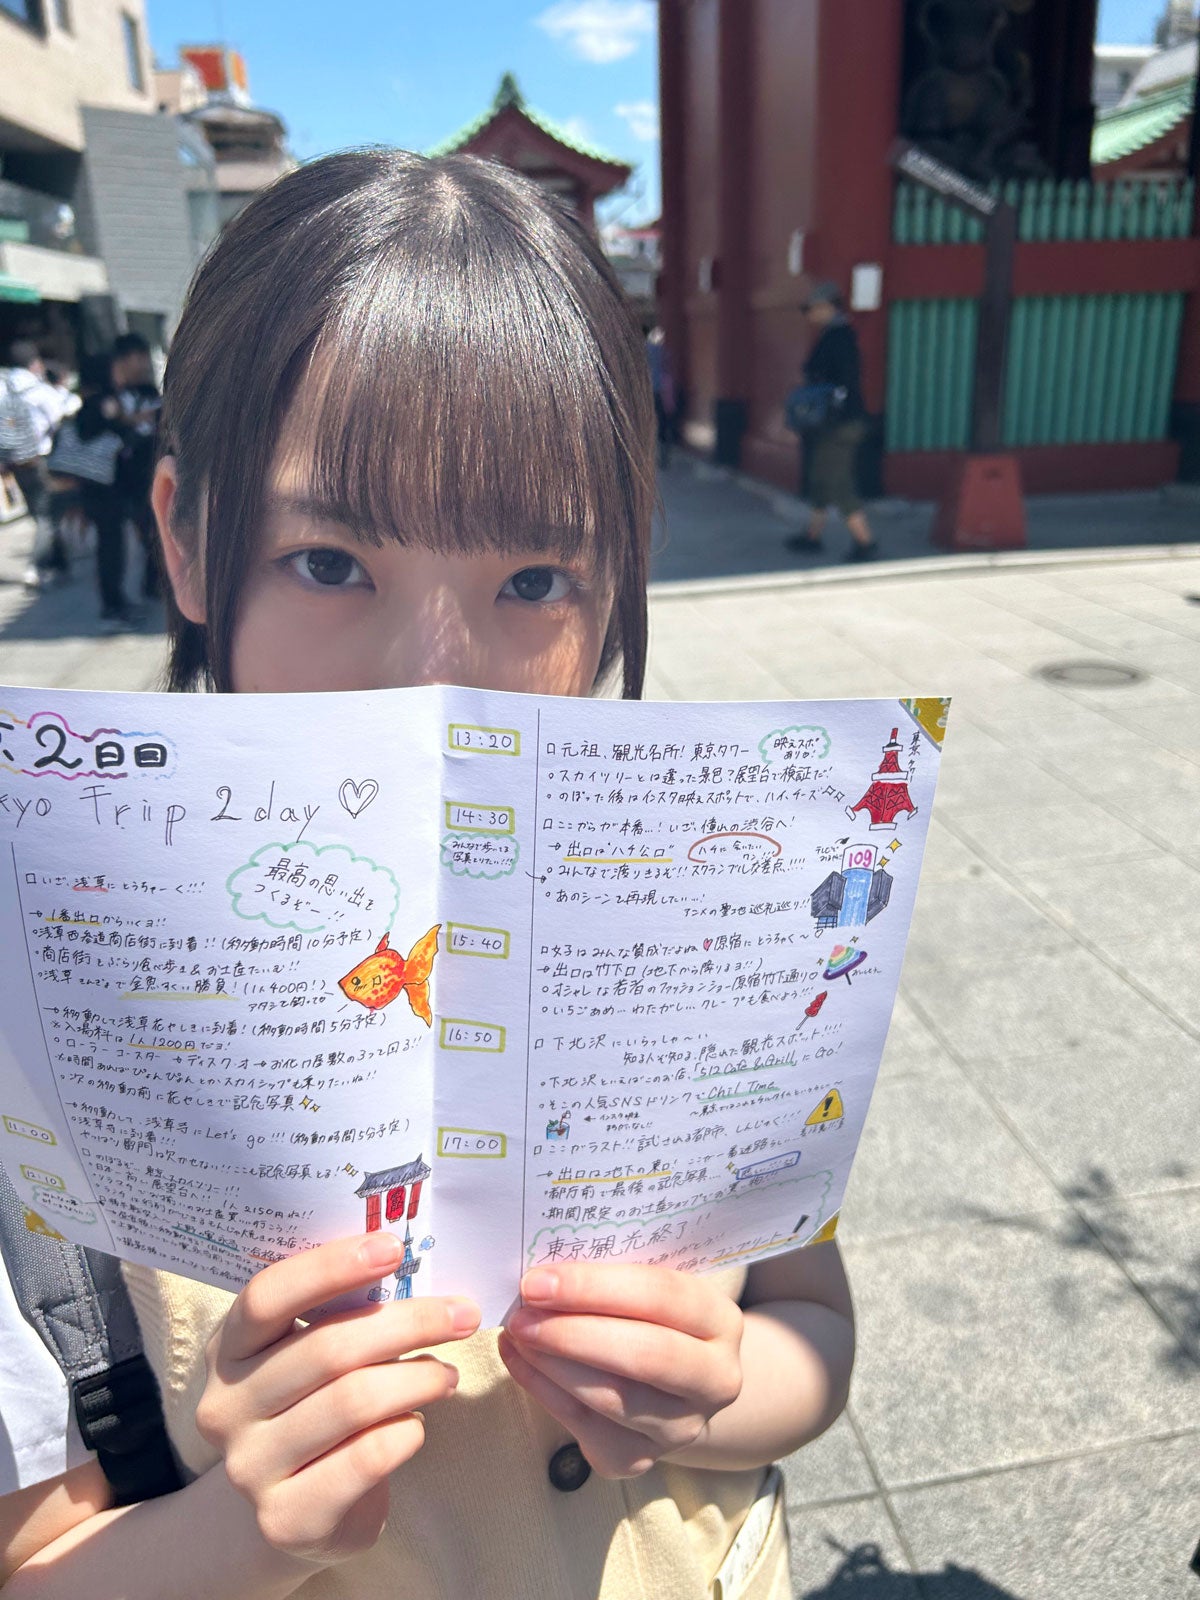 2日目
Trip 2 day ♡
最高の思い出を
つくるぞー!!
□いざ、浅草にとうちゃーく!!!
→1番出口からいくヨ!!
◦浅草西参道商店街に到着!!(移動時間10分予定)
◦商店街をぶらり食べ歩き&お土産たいむ!!
◦浅草きんぎょで金魚すくい勝負!(1人400円!)
アタシを釣って♡
→移動して浅草花やしきに到着!(移動時間5分予定)
※入場料は1人1200円だョ!
◦ローラーコースター→ディスク・オー→お化け屋敷の3つを回る!!
※時間あればぴょんぴょんとかスカイシップも乗りたいね!!
◦次の移動前に花やしきで記念写真
→移動して、浅草寺にLet's go!!!(移動時間5分予定)
◦浅草寺に到着!!!
やっぱり雷門は欠かせない!!ここも記念写真とる!
11:00
□のぼるぞ~東京スカイツリー!!!
日本一高い展望台へ!!
1人2150円ね!!
12:10
13:20
□元祖、観光名所!東京タワー
映えスポ
ありか!
東京タワー
◦スカイツリーとは違った景色?展望台で検証だ!
◦のぼった後はインスタ映えスポットで、ハイ、チーズ
14:30
みんなで歩いてる
写真とりたい!!!
□ここからが本番…!いざ、憧れの渋谷へ!
→出口は"ハチ公口"
ハチに会いたい
ワン!!!
109
◦みんなで渡りきるぞ!!スクランブル交差点!!!!
◦あのシーンを再現したい…!
アニメの聖地巡礼巡り!!
15:40
□女子はみんな賛成だよね♡原宿にとうちゃく~
→出口は竹下口(地下から降りるヨ!!)
◦オシャレな若者のファッションショー原宿竹下通り
◦いちごあめ…わたがし…クレープも食べよう!!!
16:50
□下北沢にいらっしゃ~い
知る人ぞ知る、隠れた観光スポット!!!!
◦下北沢といえばこのお店、「512 Cafe & Grill」にGo!
◦そこの人気SNSドリンクでChill Time
17:00
□ここがラスト!!試される都市、しんじゅく!!!
→出口は地下の東口!ここが一番迷路らしい…
◦都庁前で最後の記念写真…
◦期間限定のお土産ショップでお買い物!!
東京観光終了!!
コンプリート!